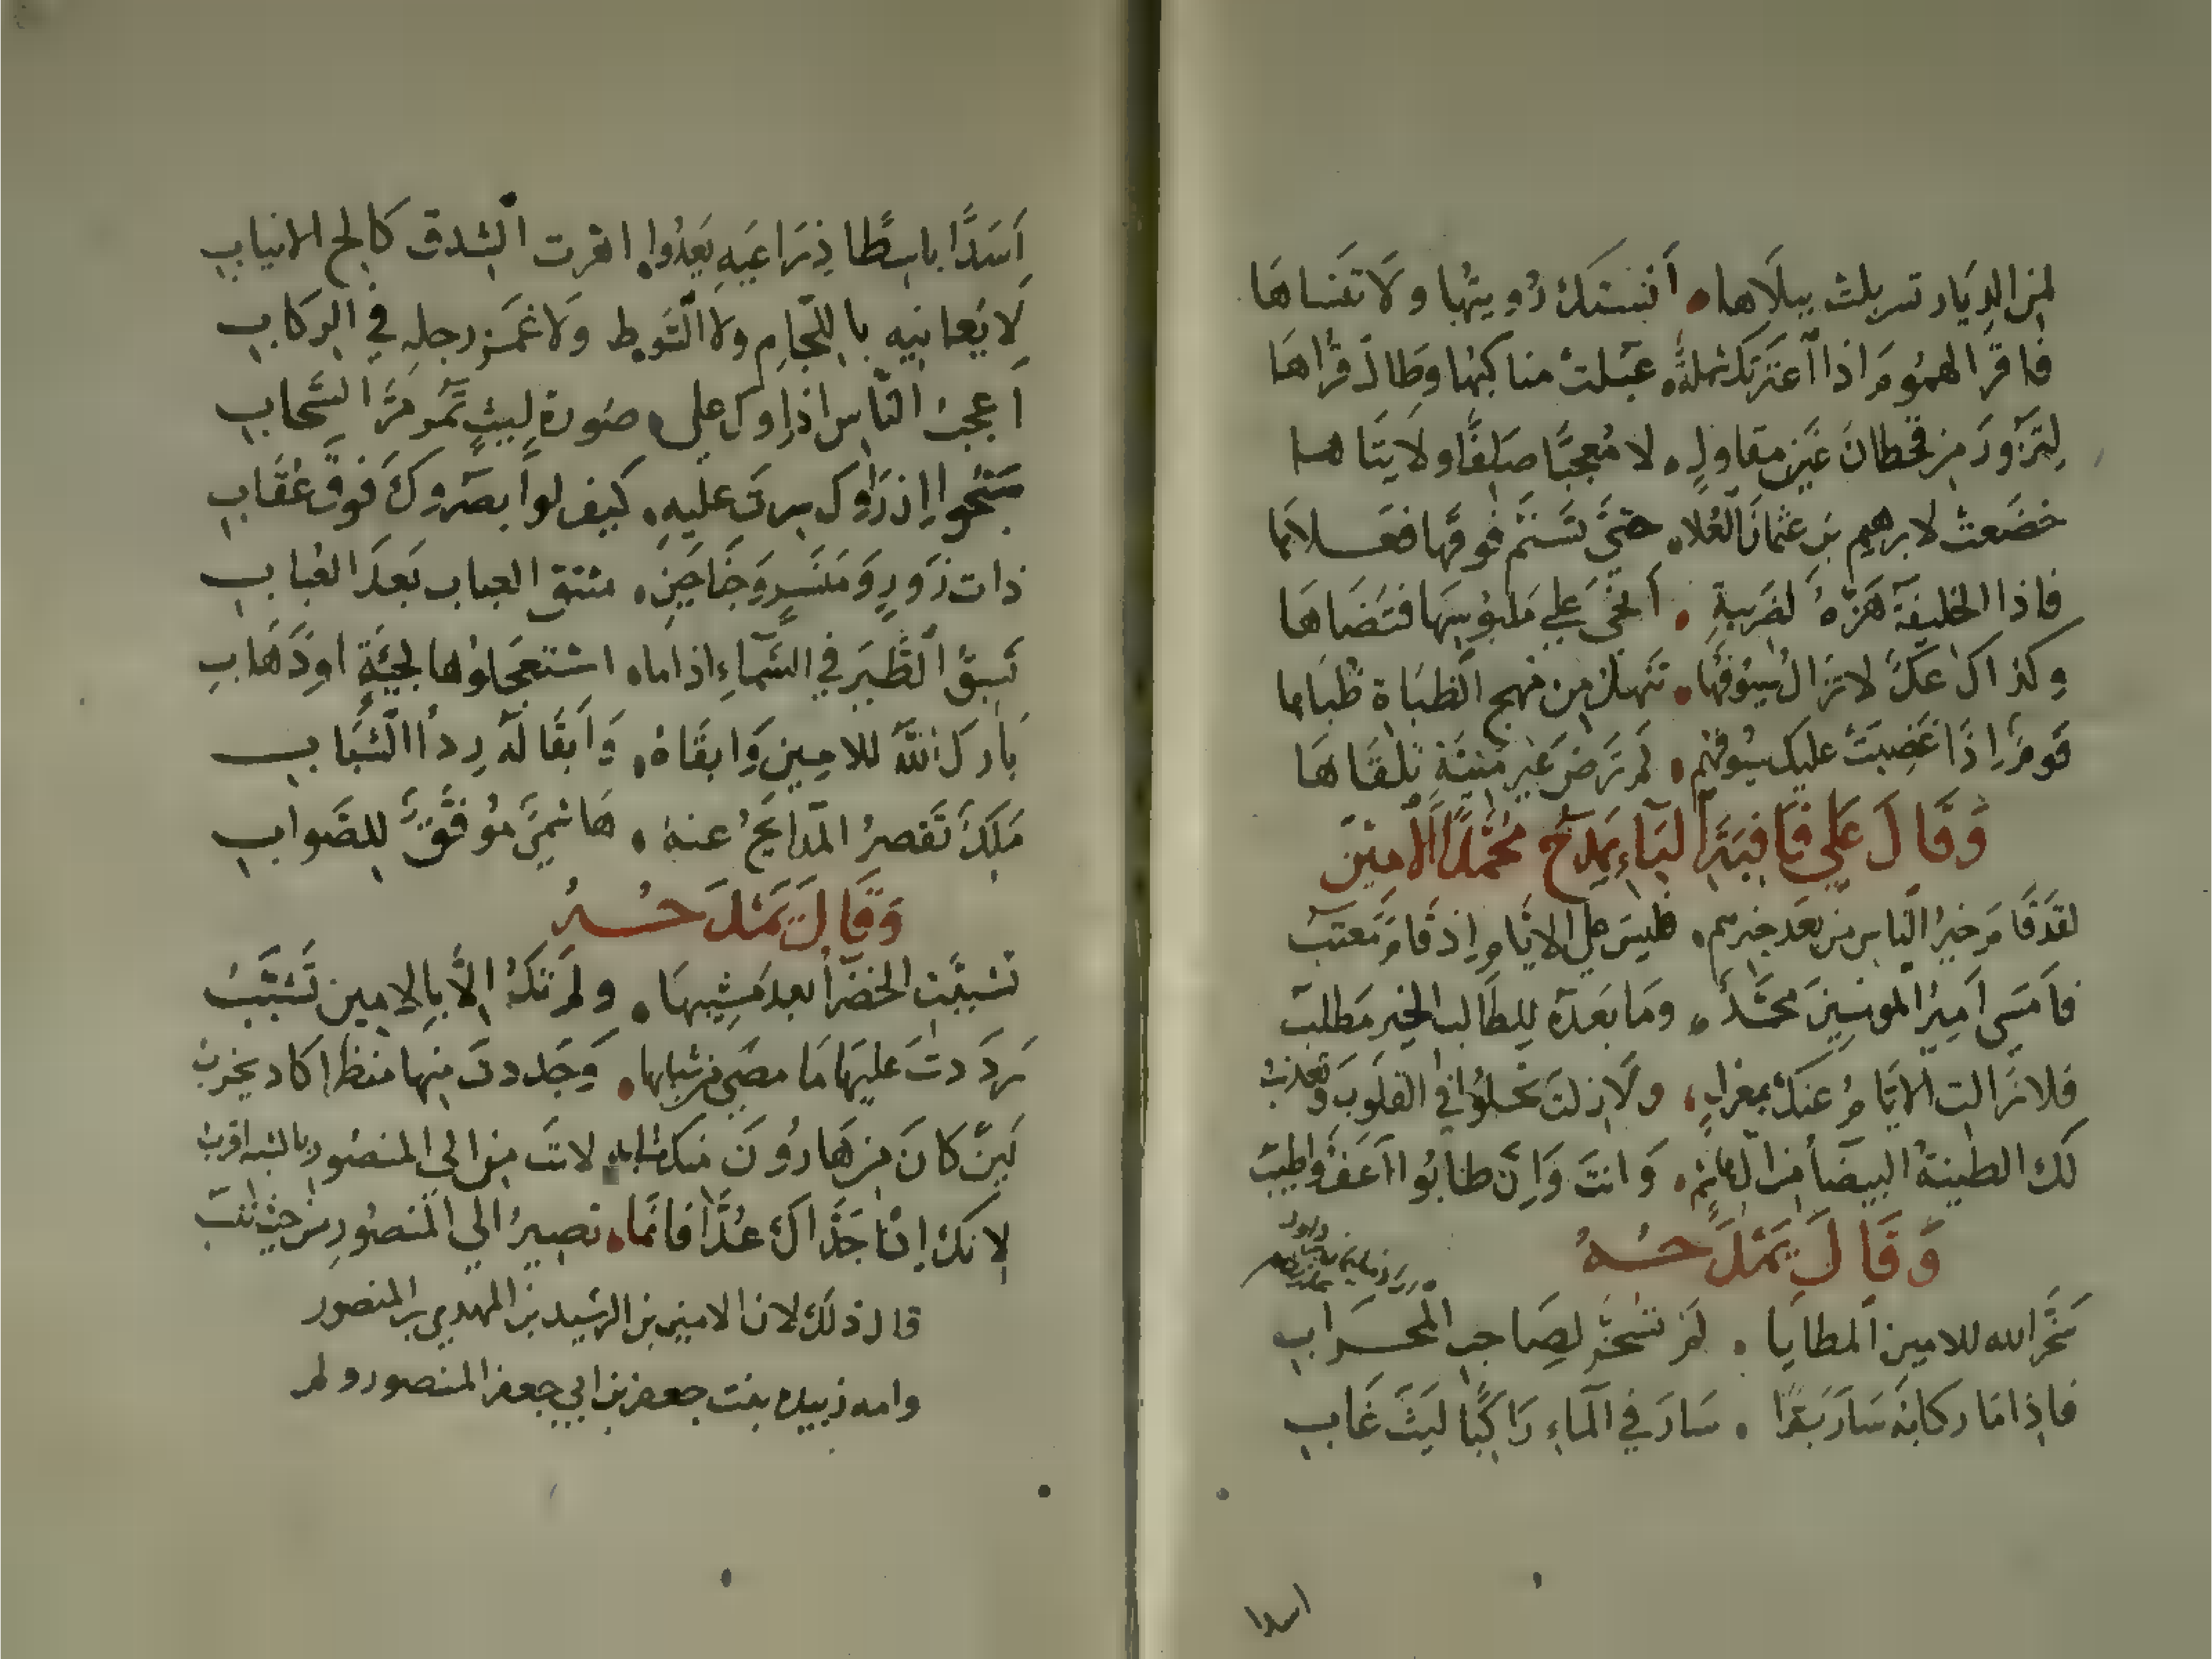 لمن الديار تسربلت ببلاها . أنستك رؤيتها ولا تنساها
فاقر الهموم اذا اعترتك شملة . عبلت مناكبها وطال قراها
لتزور من قحطان غير مقاول . لا معجبا صلفا ولا يتاها
خضعت لابرهيم بن عثمان العلا . حتى تسنم فوقها فعلاها
فاذا الخليفة هزه لضريبة . انحى على ملبوسها فتضاها
وكذاك عك لا تزال سيوفها . تنهل من مهج الظباة ظباها
قوم اذا غضبت عليك سيوفهم . لم ترض غير منية تلقاها
وقال على قافية الباء يمدح محمدا الامين
لقد قام خير الناس من بعد خيرهم . فليس على الايام اذ قام معتب
فامسى امير المومنين محمد . وما بعده للطالب الخير مطلب
فلا زالت الايام عنك بمعزل . ولا زلت تحلو في القلوب وتعذب
لك الطينة البيضا من آل هاشم . وانت وان طابوا اعف واطيب
وقال يمدحه
سخر الله للامين المطايا . لم تسخر لصاحب المحراب
فاذا ما ركابه سار بقرا . سار في الماء راكبا ليث غاب
اسدا
أسدا باسطا ذراعيه يعدوا . اهرت الشدق كالح الانياب
لا يعانيه باللجام ولا السوط ولا غمز رجله في الركاب
اعجب الناس اذ راوك على . صورة ليث تمر مر السحاب
سبحوا إذ رأوك سرت عليه . كيف لو ابصروك فوق عقاب
ذات زور ومنسر وجناحين . تشق العباب بعد العباب
تسبق الطير في السماء اذا ما . استعجلوها بجيئة او ذهاب
بارك الله للامين وابقاه . وابقا له ردا الشباب
ملك تقصر المدايح عنه . هاشمي موفق للصواب
وقال يمدحه
تشببت الخضرا بعد مشيبها . ولم تك الا بالامين تشبب
رددت عليها ما مضى من شبابها . وجددت منها منظرا كاد يخرب
لين كان من هارون منك لانت من الى المنصور بالشبه اقرب
لانك إن جداك عدا فانما . تصير الى المنصور من حيث تنسب
قال ذلك لان الامين بن الرشيد بن المهدي بن المنصور
وامه زبيده بنت جعفر بن ابي جعفر المنصور ولم